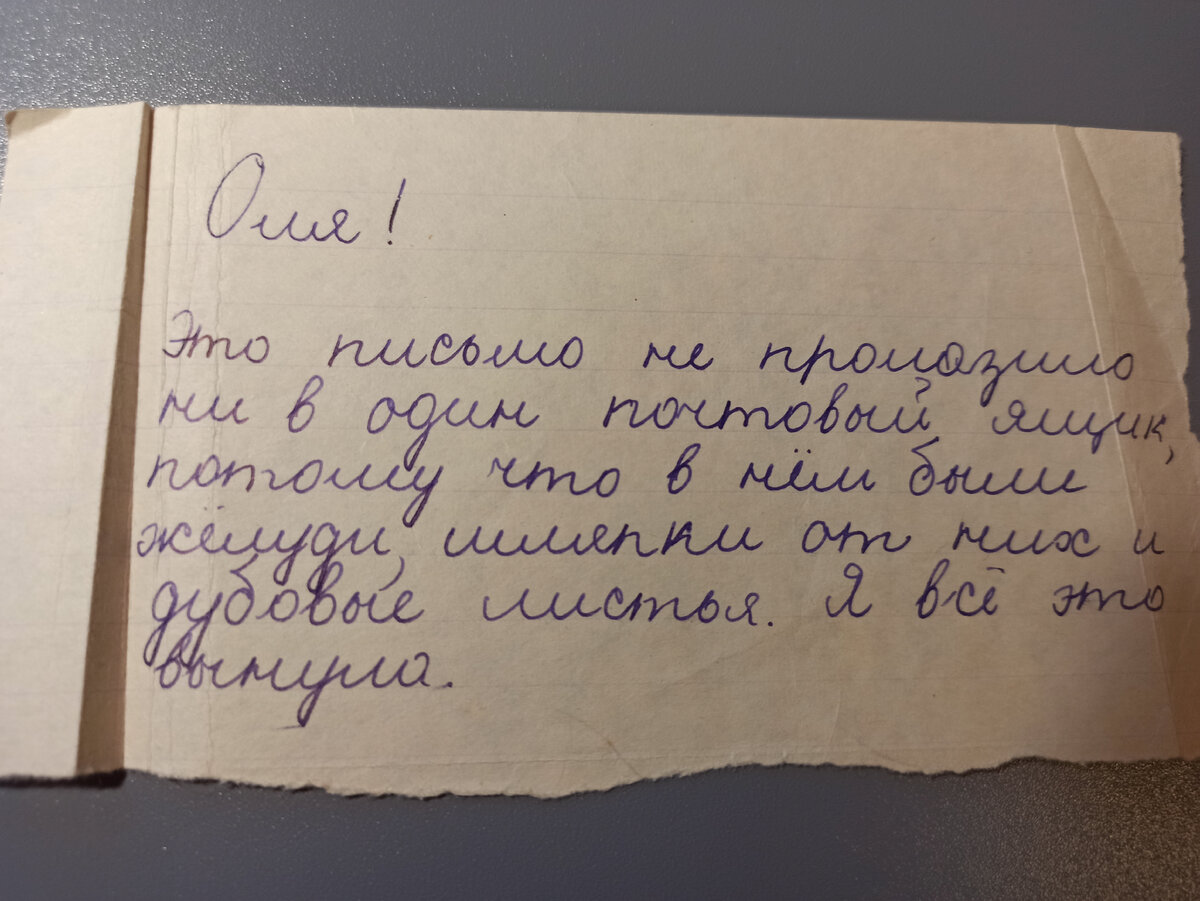 Оля!
Это письмо не пролазило
ни в один почтовый ящик,
потому что в нём были
жёлуди, шляпки от них и
дубовые листья. Я всё это
вынула.